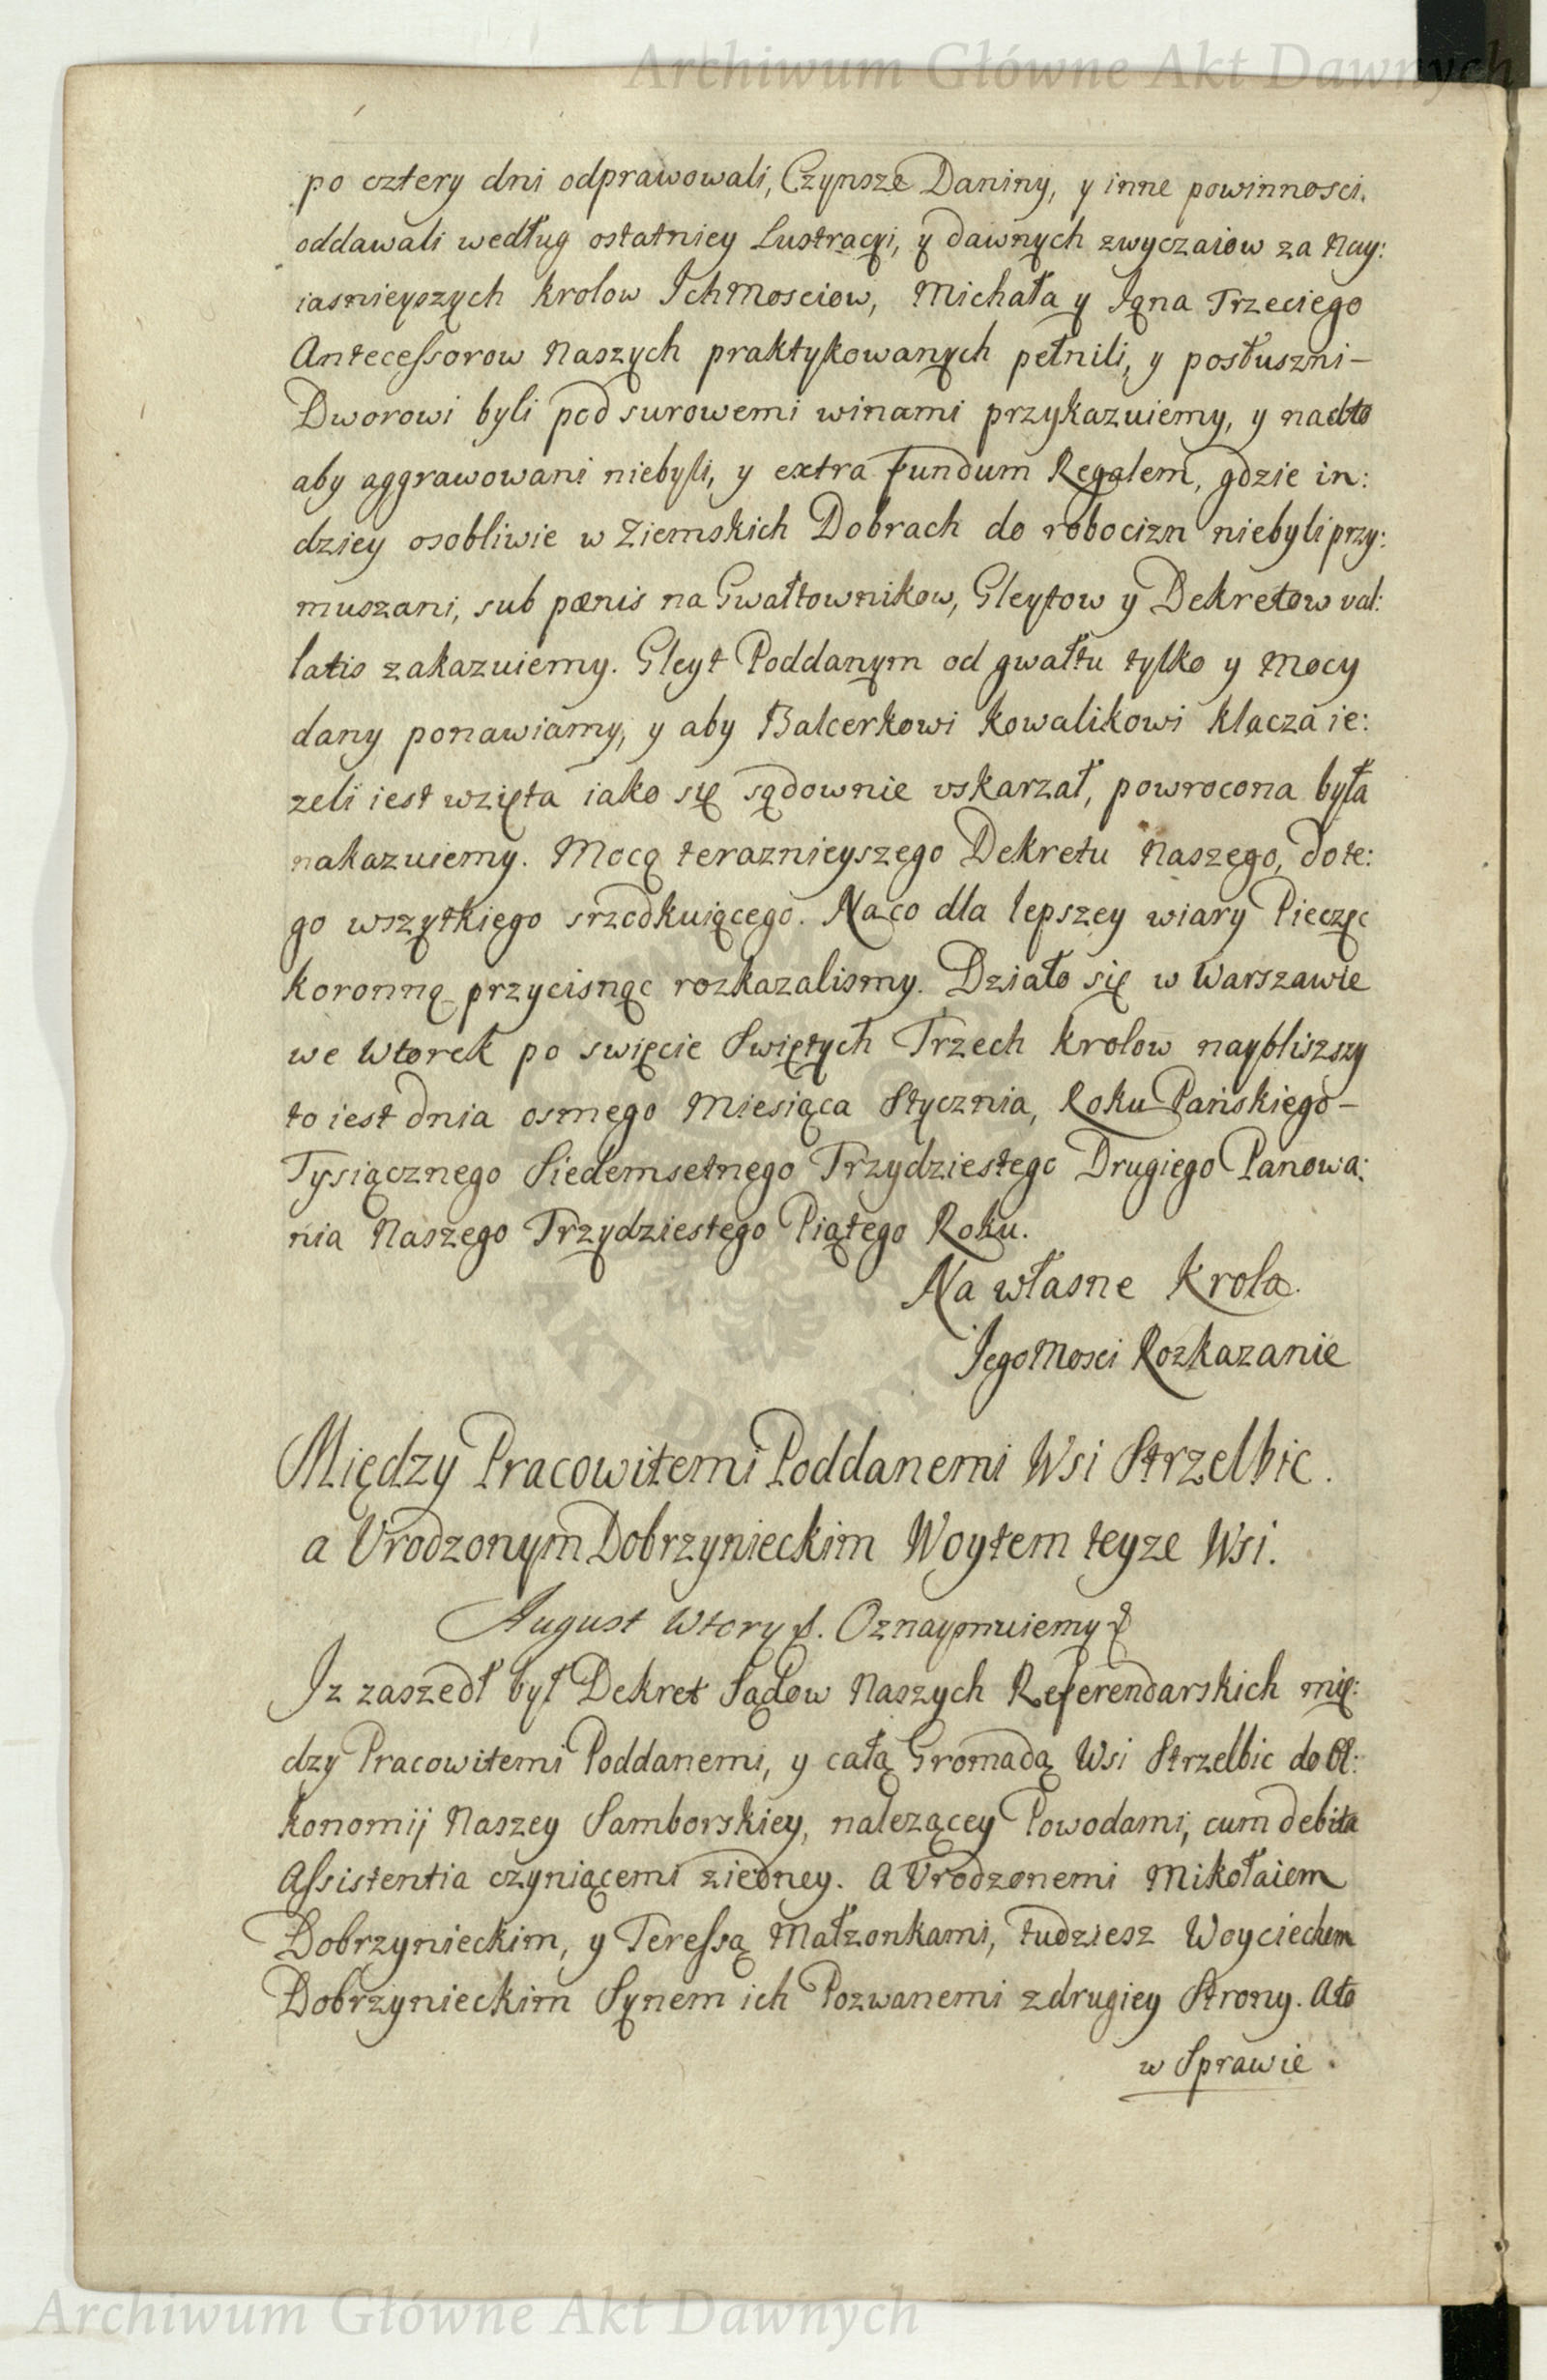 Archiwum Główne Akt Dawnych
po cztery dni odprawowali, Czynsze Daniny, y inne powinnosci.
oddawali według ostatniey Lustracyi, y dawnych zwyczaiow za Nay:
iasnieyszych Krolow IchMosciow, Michała y Jana Trzeciego
Antecessorow Naszych praktykowanych pełnili, y posłuszni –
Dworowi byli pod surowemi winami przykazuiemy, y nadto
aby aggrawowani niebyli, y extra Fundum Regalem, gdzie in:
dziey osobliwie w Ziemskich Dobrach do robocizn niebyli przy:
muszani, sub pœnis na Gwałtownikow, Gleytow y Dekretow val:
latis zakazuiemy. Gleyt Poddanym od gwałtu tylko y Mocy
dany ponawiamy, y aby Balcerkowi Kowalikowi Klacza ie:
zeli iest wzięta iako się sądownie uskarzał, powrocona była
nakazuiemy. Mocą teraznieyszego Dekretu Naszego, do te:
go wszytkiego srzodkuiącego. Na co dla lepszey wiary Pieczęc
Koronną przycisnąc rozkazalismy. Działo się w Warszawie
we Wtorek po swięcie Swiętych Trzech Krolow naybliszszy
to iest dnia osmego Miesiąca Stycznia, Roku Pańskiego –
Tysiącznego Siedemsetnego Trzydziestego Drugiego Panowa:
nia Naszego Trzydziestego Piątego Roku.
Na własne Krola.
JegoMosci Rozkazanie
Między Pracowitemi Poddanemi Wsi Strzelbic.
a Urodzonym Dobrzynieckim Woytem teyze Wsi.
August Wtory &. Oznaymuiemy &
Iz zaszedł był Dekret Sądow Naszych Referendarskich mię:
dzy Pracowitemi Poddanemi, y całą Gromadą Wsi Strzelbic do Œ:
konomij Naszey Samborskiey, nalezącey Powodami, cum debita
Assistentia czyniącemi ziedney. A Urodzonemi Mikołaiem
Dobrzynieckim, y Teressą Małzonkami, tudziesz Woyciechem
Dobrzynieckim Synem ich Pozwanemi zdrugiey Strony. Ato
w Sprawie.
Archiwum Główne Akt Dawnych